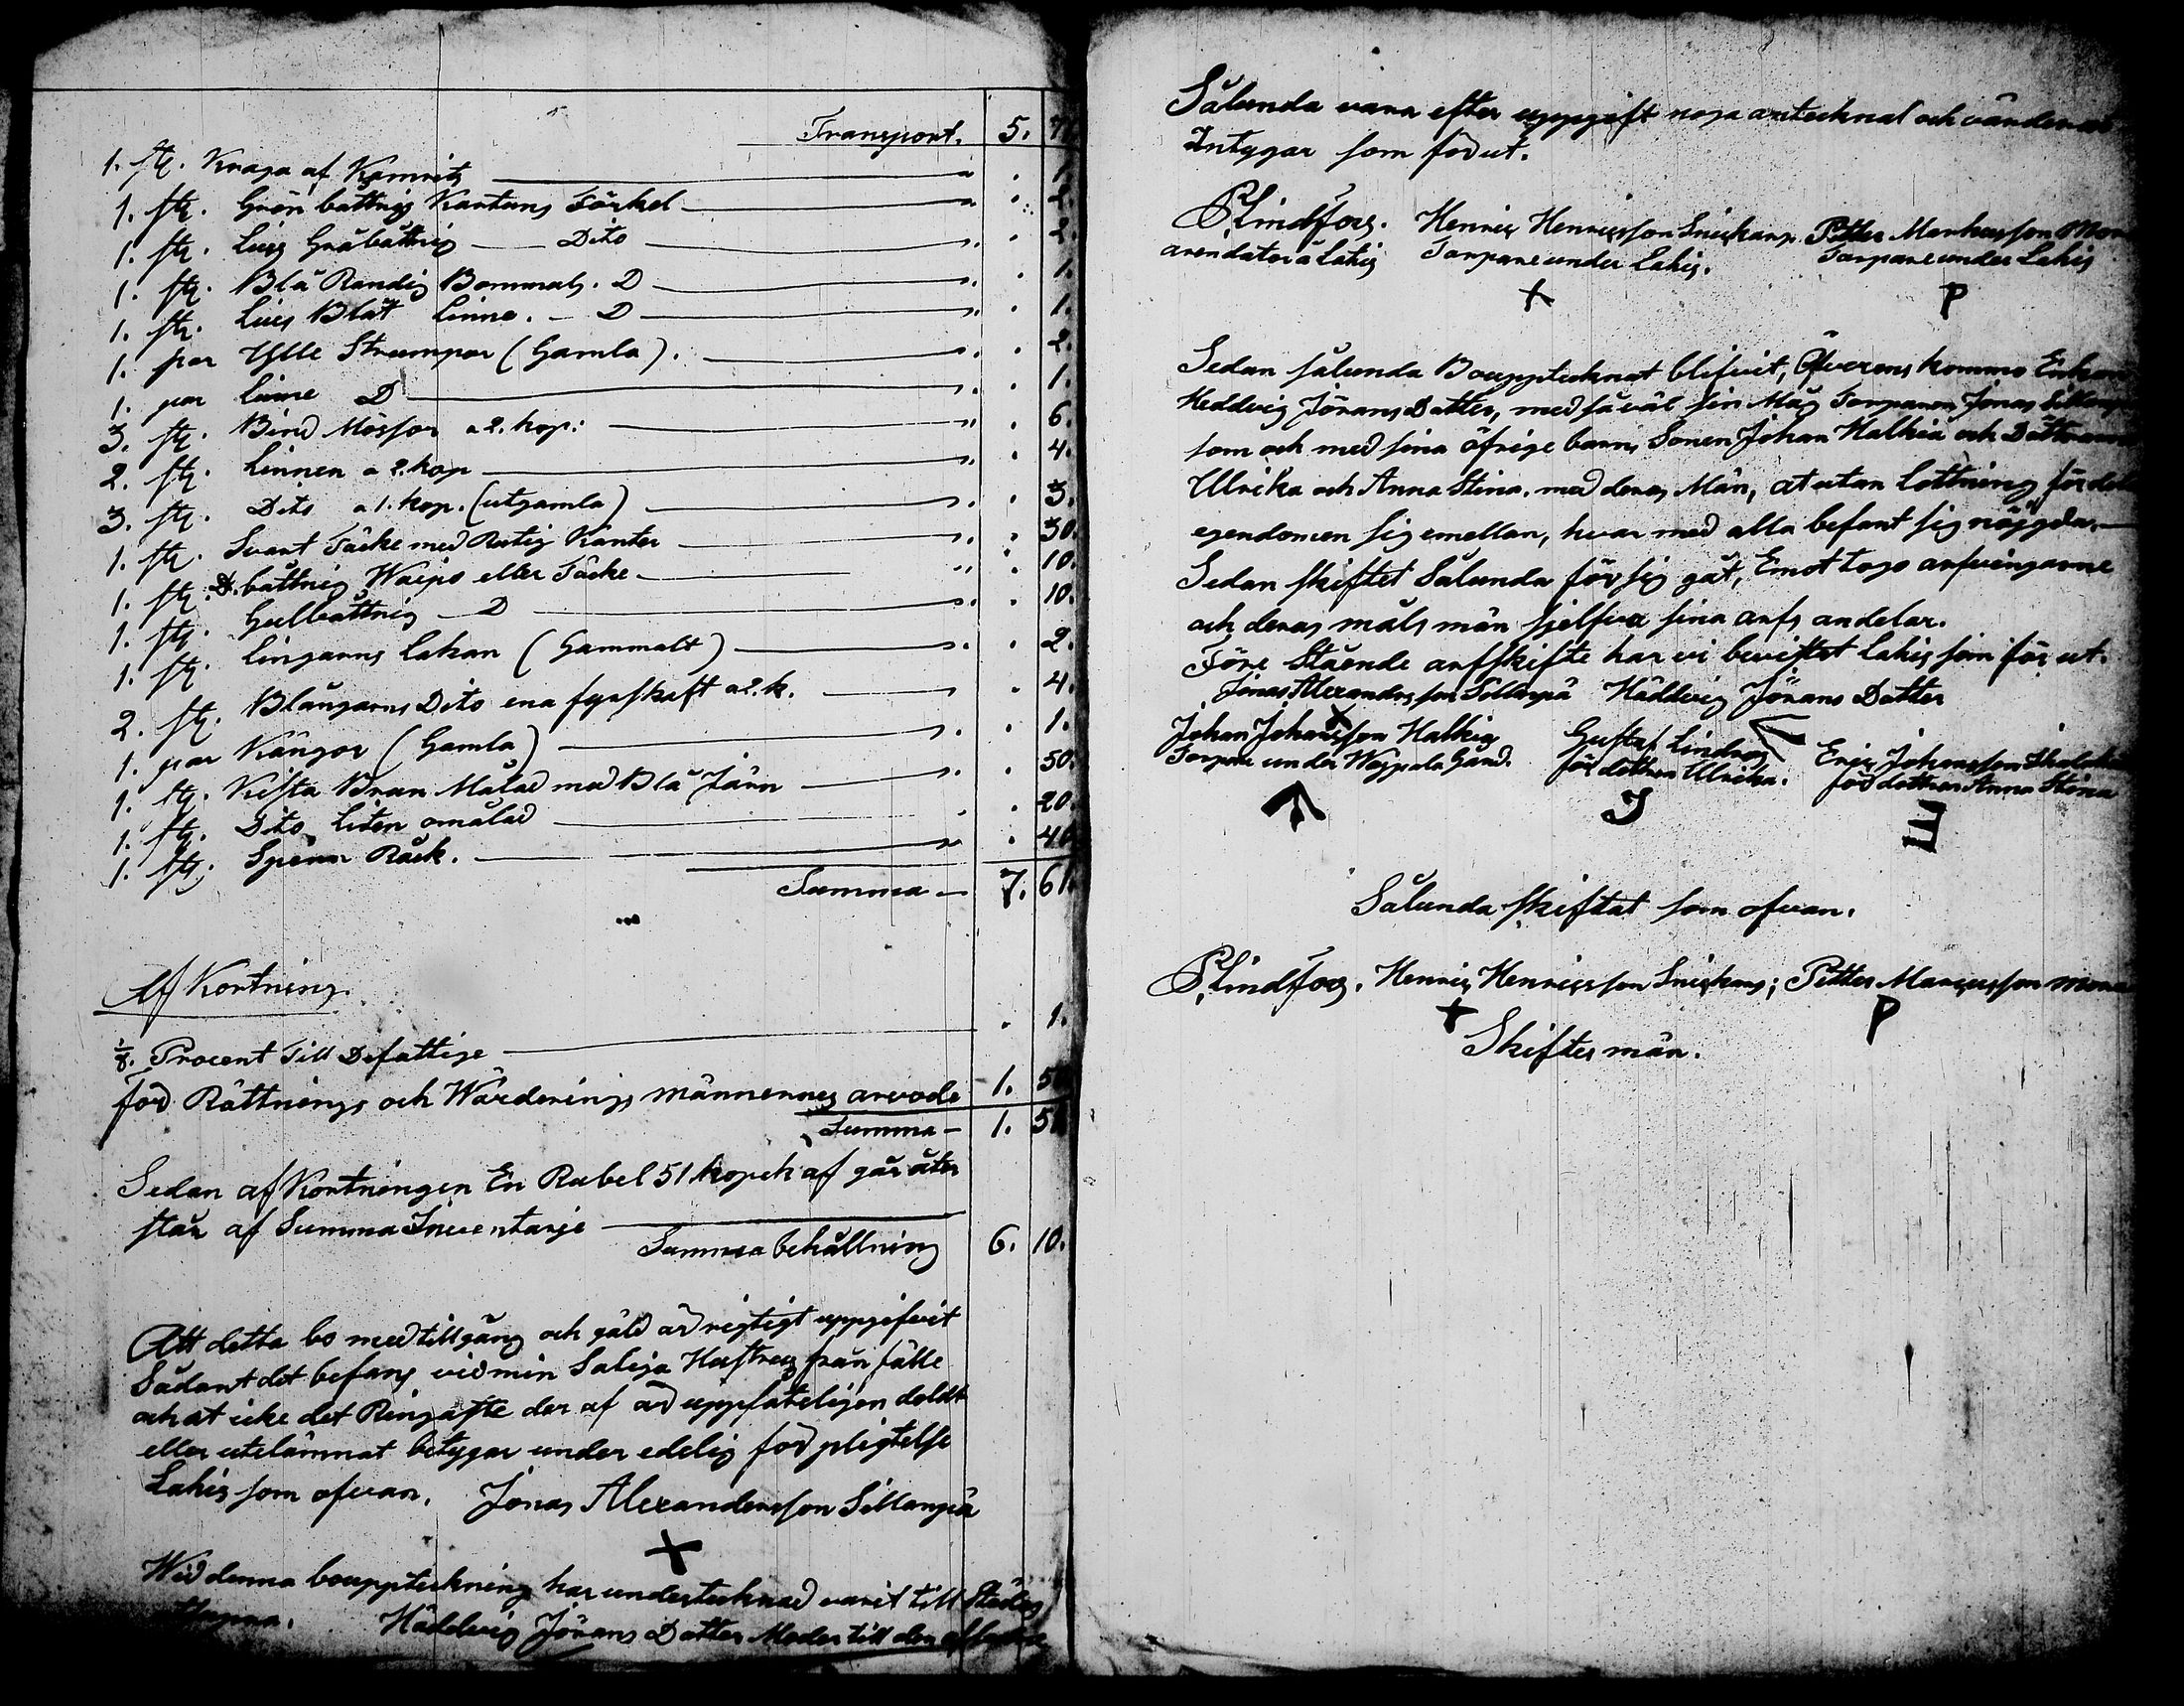 Transport. 5. 7
1. st. Kraga af Kamrits " . 1.
1. st. Grön båttnig KartunsFörkel " . 2.
1. st. Lius Gråbåttnig Dito " . 2.
1. st. Blå Randig Bommuls. D " . 1.
1. st. Lius Blåt Linne. - D " . 1.
1. par Ylle Strumpor (Gamla). " . 2.
1. par Linne D " . 1.
3. st. Bind Mössor a 2. kop: " . 6.
2. st. Linnen a 2. kop " . 4.
3. st. Dito a 1. kop. (utgamla) " . 3.
1. st. Svart Täcke med Rutig Kanter " . 30.
1. st. D. båttnig Waipo eller Täcke " . 10.
1. st. Gulbåttnig D " . 10.
1. st. Lingarns Lakan (Gammalt) " . 2.
2. st. Blångarns Dito ena fyrskaft a 2. k. " . 4.
1. par Kängor (Gamla) " . 1.
1. st. Kista Brun Målad med Blå Järn " . 50.
1. st. Dito Liten omålad " . 20.
1. st. Spinn Råck. " . 40
Summa 7. 61.
Af Kortning.
1/8. Procent Till Defattige . 1.
för Rättnings och Wärderings männernes arvode 1. 50
Summa 1. 51
Sedan af Kortningen En Rubel 51 kopek af går åter
står af Summa Inventarje
Summa behållning 6. 10.
Att detta bo med tillgång och gäld är rigtigt uppgifvit
Sådant det befans vid min Saliga Hustrus frånfälle
och at icke det Ringaste der af är uppsåteligen doldt
eller utelämnat betygar under edelig förpligtelse
Lahis som ofvan. Jonas Alexandersson Sillanpää
+
Wid denna bouppteckning har undertecknad varit till Städes
Häddvig Jörans Dotter Moder till den
Sålunda vara efter uppgift noga antecknat och värderat
Intygar som förut.
P. Lindfors. Henric Henricsson Snickars Petter Markusson
arendator å Lahis Torpare under Lahis. Torpare under Lahis
+ P
Sedan sålunda Boupptecknat blifvit, Öfverens kommo Enkan
Heddvig Jörans Dotter, med såväl sin Måg Torparen Jonas Sillanpää
som och med sina öfrige barn, Sonen Johan Halkia och Döttrarna
Ulrika och Anna Stina. med deras Män, at utan Lottning fördela
egendomen sig emellan, hvar med alla befant sig nöjgda.
Sedan skiftet Sålunda för sig gåt, Emot togo arfvingarne
och deras måls män sjelfva sina arfs andelar.
Före Stående arfskifte har vi bevistat Lahis som för ut.
Jonas Alexandersson Sillanpää Häddvig Jörans Dotter
Johan Johansson Halkia Gustaf Lindros Eric Johansson
Torpare under Wojpala Gård. för dottren Ulrika. för dottren Anna Stina
J E
Sålunda skiftat som ofvan.
P. Lindfors. Henric Henricsson Snickars; Petter Marcusson
+ P
Skiftes män.